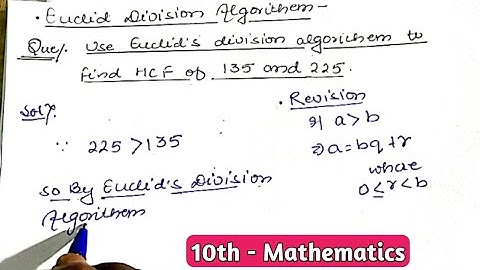 • Euclid Division Algorithem-
Que/. Use Euclid's division algorithem to
find HCF of 135 and 225.
Sol/.
∵ 225 > 135
So By Euclid's Division
Algorithem
• Revision
if a > b
⇒ a = bq + r
where
0 ≤ r < b
10th - Mathematics